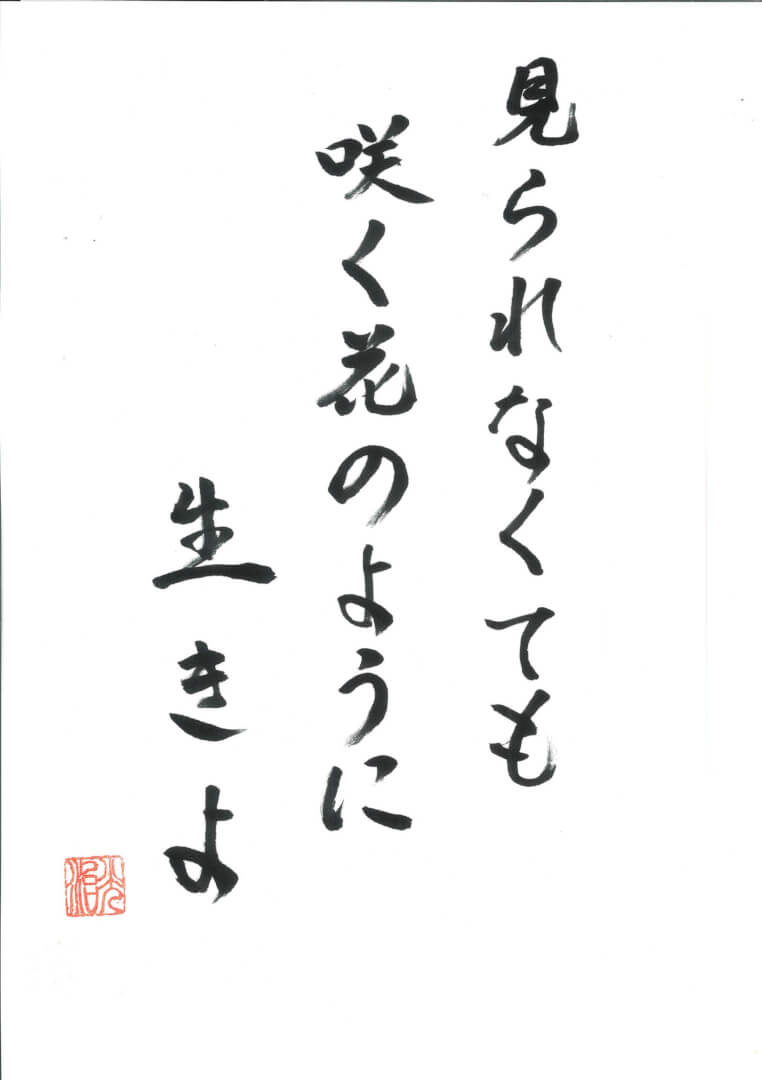 見られなくても
咲く花のように
生きよ